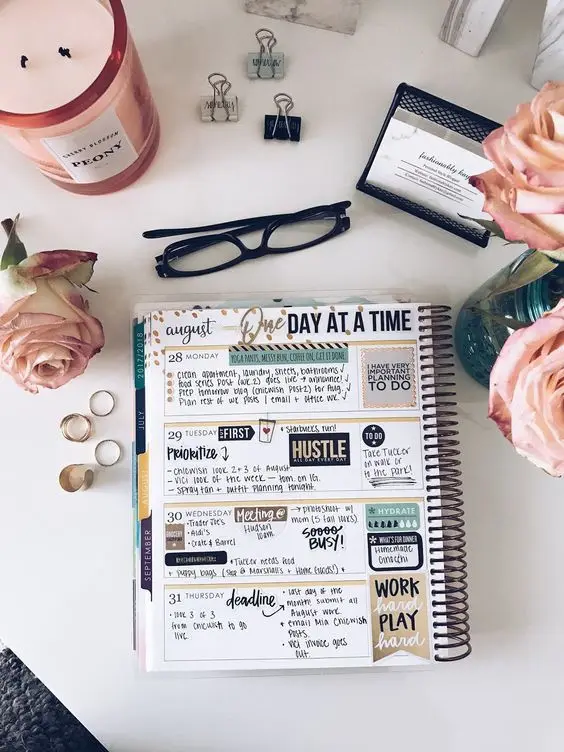 CHERRY BLOSSOM
PEONY
2017/2018
JULY
AUGUST
SEPTEMBER
august
One DAY AT A TIME
28 MONDAY
YOGA PANTS, MESSY BUN, COFFEE ON, GET IT DONE
clean apartment, laundry, sheets, bathrooms ✓
food series post (wk 2) goes live → announce! ✓
prep tomorrow blog (chicwish post 2) for Aug. ✓
Plan rest of wk posts | email + office wk. ✓
I HAVE VERY
IMPORTANT
PLANNING
TO DO
29 TUESDAY
FIRST
Prioritize ↓
• starbucks run!
HUSTLE
ALL DAY EVERY DAY
- Chicwish look 2 + 3 of August.
- Vici look of the week — 10am. on IG.
- Spray tan + outfit planning tonight.
TO DO
Take Tucker
on walk or
to the park!
30 WEDNESDAY
GROCERY
• Trader Joe's
• Aldi's
• Crate & Barrel
Meeting @
Hudson
10am
→ photoshoot w/
mom (5 fall looks)
soooo
BUSY!
• Tucker needs food
+ puppy bags (stop @ Marshall's + Home Goods!)
HYDRATE
WHAT'S FOR DINNER
Homemade
Gnocchi
31 THURSDAY
• look 3 of 3
from chicwish to go
live.
deadline
• last day of the
month! submit all
August work.
• email Mia Chicwish
posts.
• Vici invoice goes
out.
WORK
hard
PLAY
hard